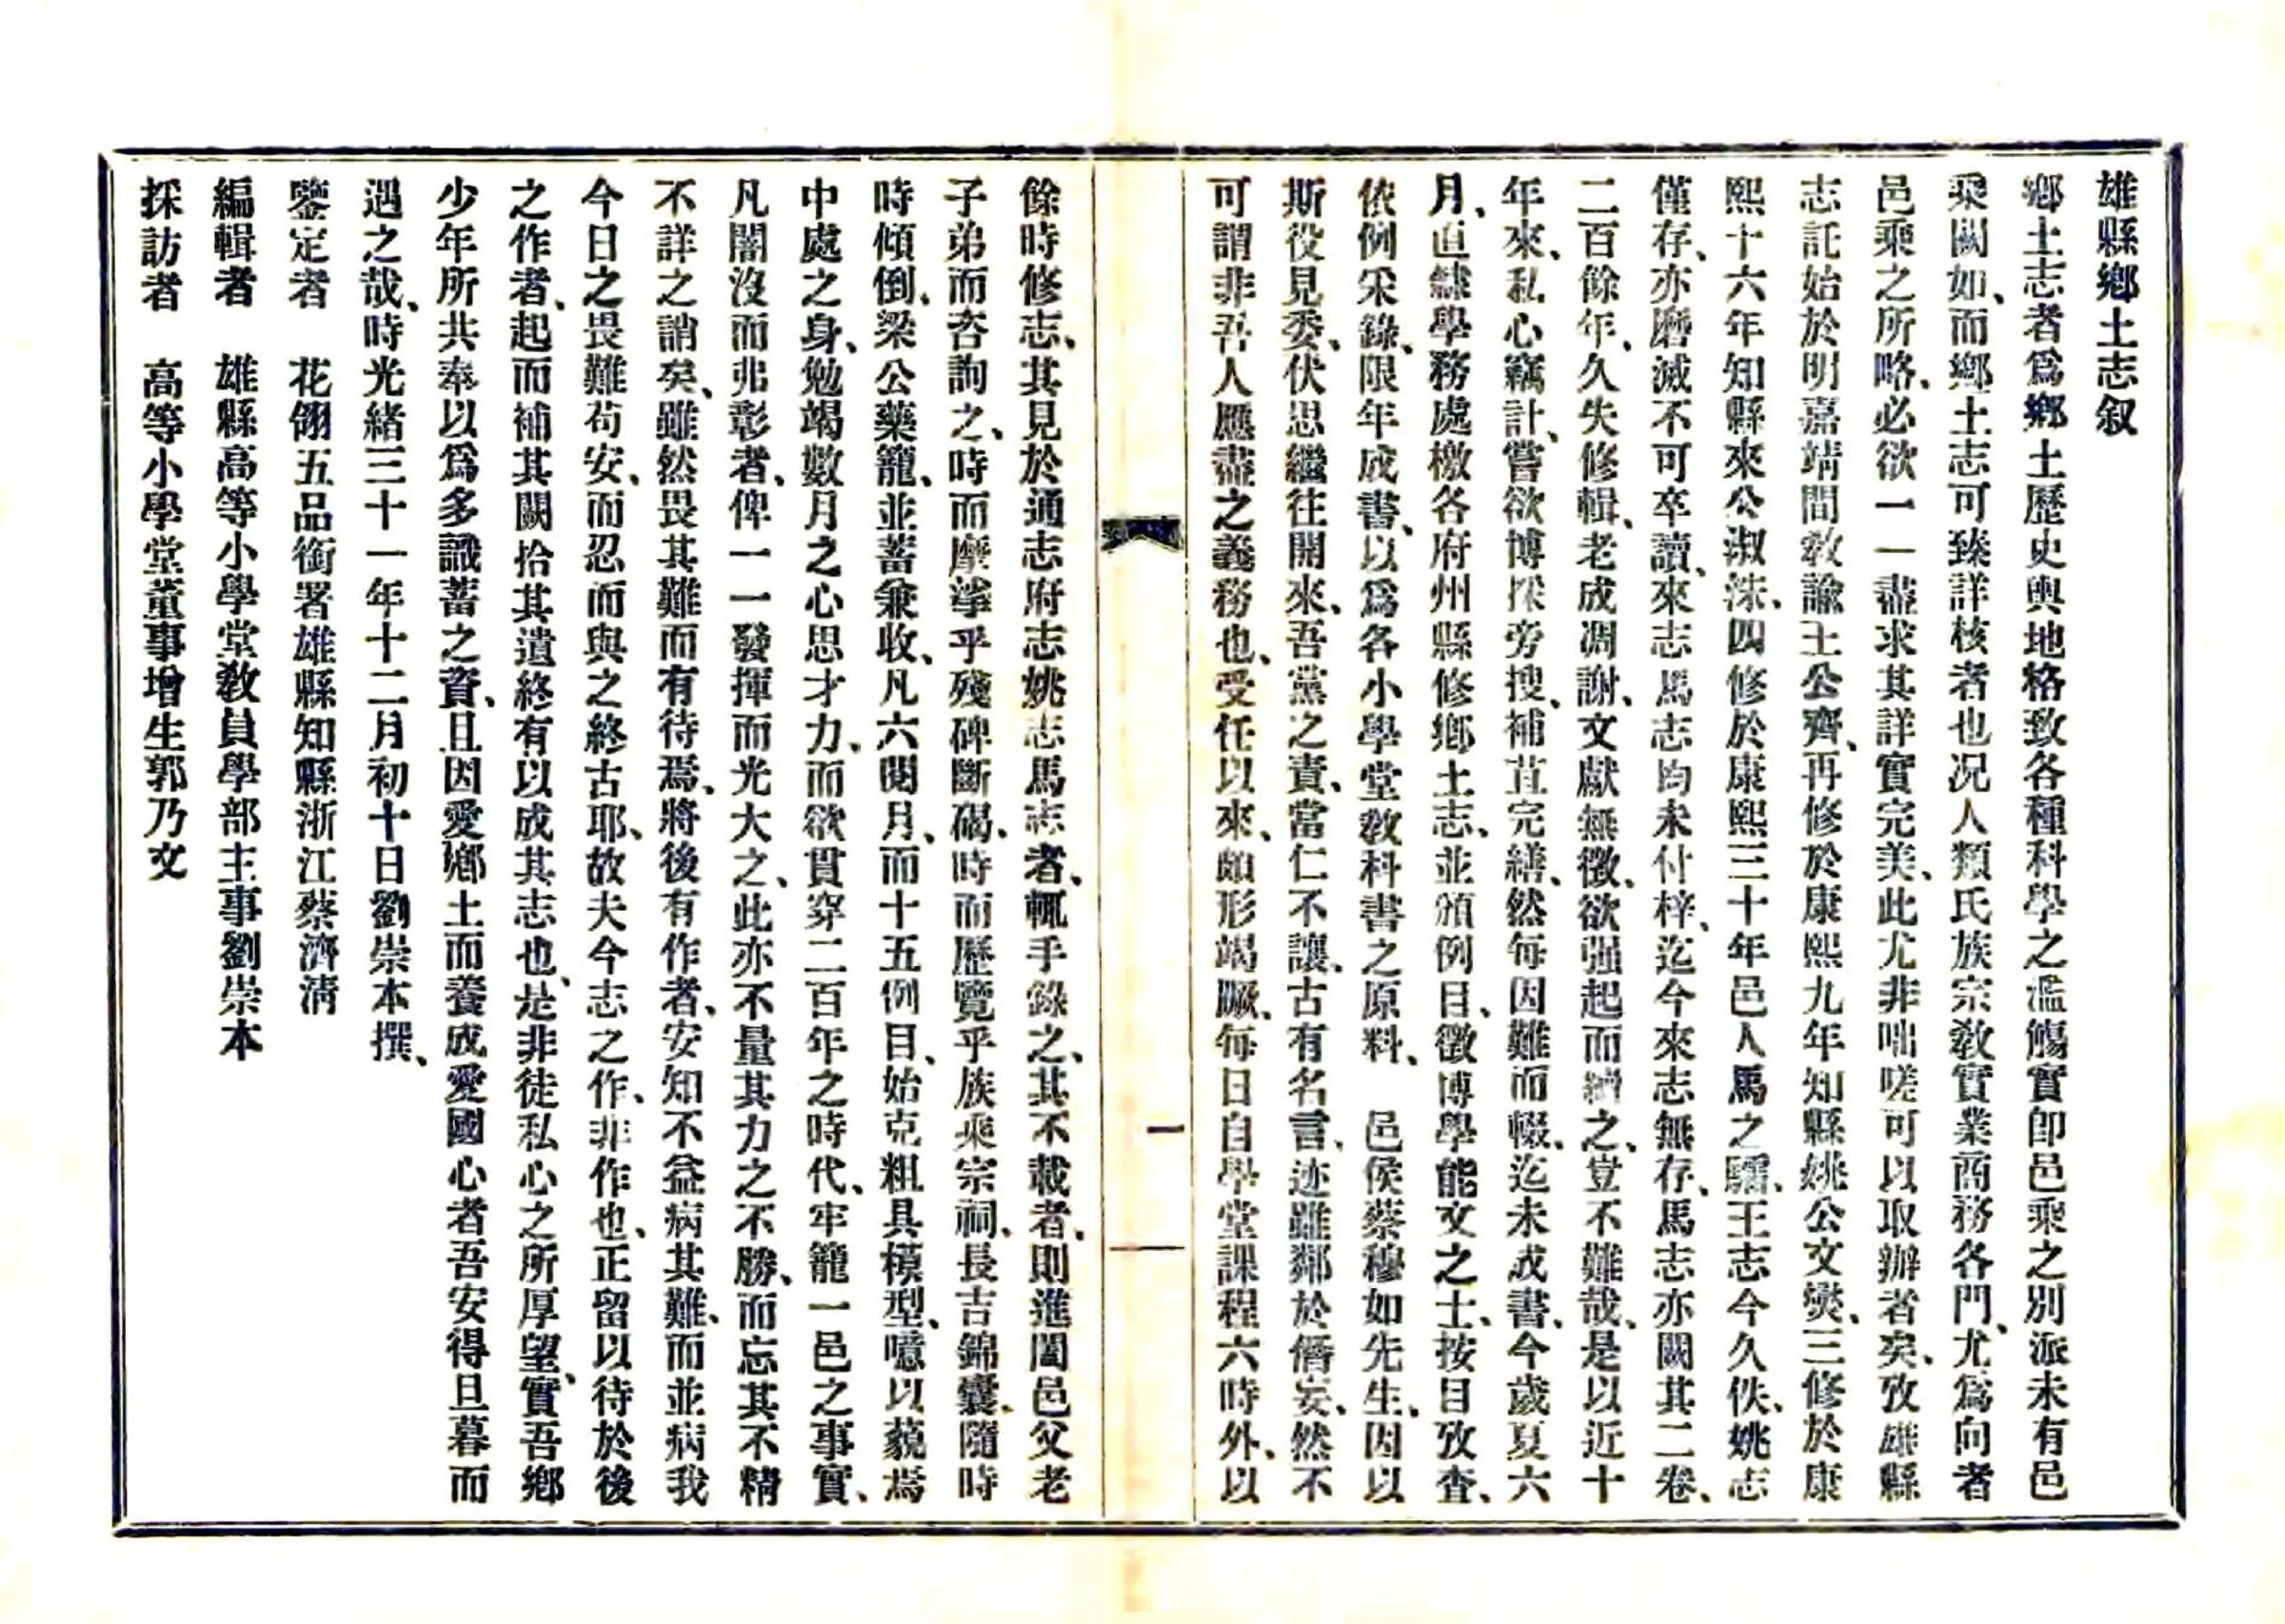 雄縣鄉土志叙
鄉土志者爲鄉土歷史輿地格致各種科學之濫觴實卽邑乘之別派未有邑
乘闕如、而鄉土志可臻詳核者也况人類氏族宗敎實業商務各門、尤爲向者
邑乘之所略、必欲一一盡求其詳實完美、此尤非咄嗟可以取辦者矣、攷雄縣
志託始於明嘉靖間敎諭王公齊、再修於康熙九年知縣姚公文燮、三修於康
熙十六年知縣來公淑洙、四修於康熙三十年邑人馬之驌、王志今久佚、姚志
僅存、亦磨滅不可卒讀、來志馬志均未付梓、迄今來志無存、馬志亦闕其二卷、
二百餘年、久失修輯、老成凋謝、文獻無徵、欲强起而續之、豈不難哉、是以近十
年來、私心竊計、嘗欲博採旁搜、補苴完繕、然每因難而輟、迄未成書、今歲夏六
月、直隸學務處檄各府州縣修鄉土志、並頒例目、徵博學能文之士、按目攷查、
依例采錄、限年成書、以爲各小學堂敎科書之原料、　邑侯蔡穆如先生、因以
斯役見委、伏思繼往開來、吾黨之責、當仁不讓、古有名言、迹雖鄰於僭妄、然不
可謂非吾人應盡之義務也、受任以來、頗形竭蹶、每日自學堂課程六時外、以
餘時修志、其見於通志府志姚志馬志者、輒手錄之、其不載者、則進闔邑父老
子弟而咨詢之、時而摩挲乎殘碑斷碣、時而歷覽乎族乘宗祠、長吉錦囊、隨時
時傾倒、梁公藥籠、並蓄兼收、凡六閱月、而十五例目、始克粗具模型、噫以藐焉
中處之身、勉竭數月之心思才力、而欲貫穿二百年之時代、牢籠一邑之事實、
凡闇沒而弗彰者、俾一一發揮而光大之、此亦不量其力之不勝、而忘其不精
不詳之誚矣、雖然畏其難而有待焉、將後有作者、安知不益病其難、而並病我
今日之畏難苟安、而忍而與之終古耶、故夫今志之作、非作也、正留以待於後
之作者、起而補其闕拾其遺終有以成其志也、是非徒私心之所厚望、實吾鄉
少年所共奉以爲多識蓄之資、且因愛鄉土而養成愛國心者吾安得旦暮而
遇之哉、時光緒三十一年十二月初十日劉崇本撰、
鑒定者　花翎五品銜署雄縣知縣浙江蔡濟淸
編輯者　雄縣高等小學堂敎員學部主事劉崇本
採訪者　高等小學堂董事增生郭乃文
一